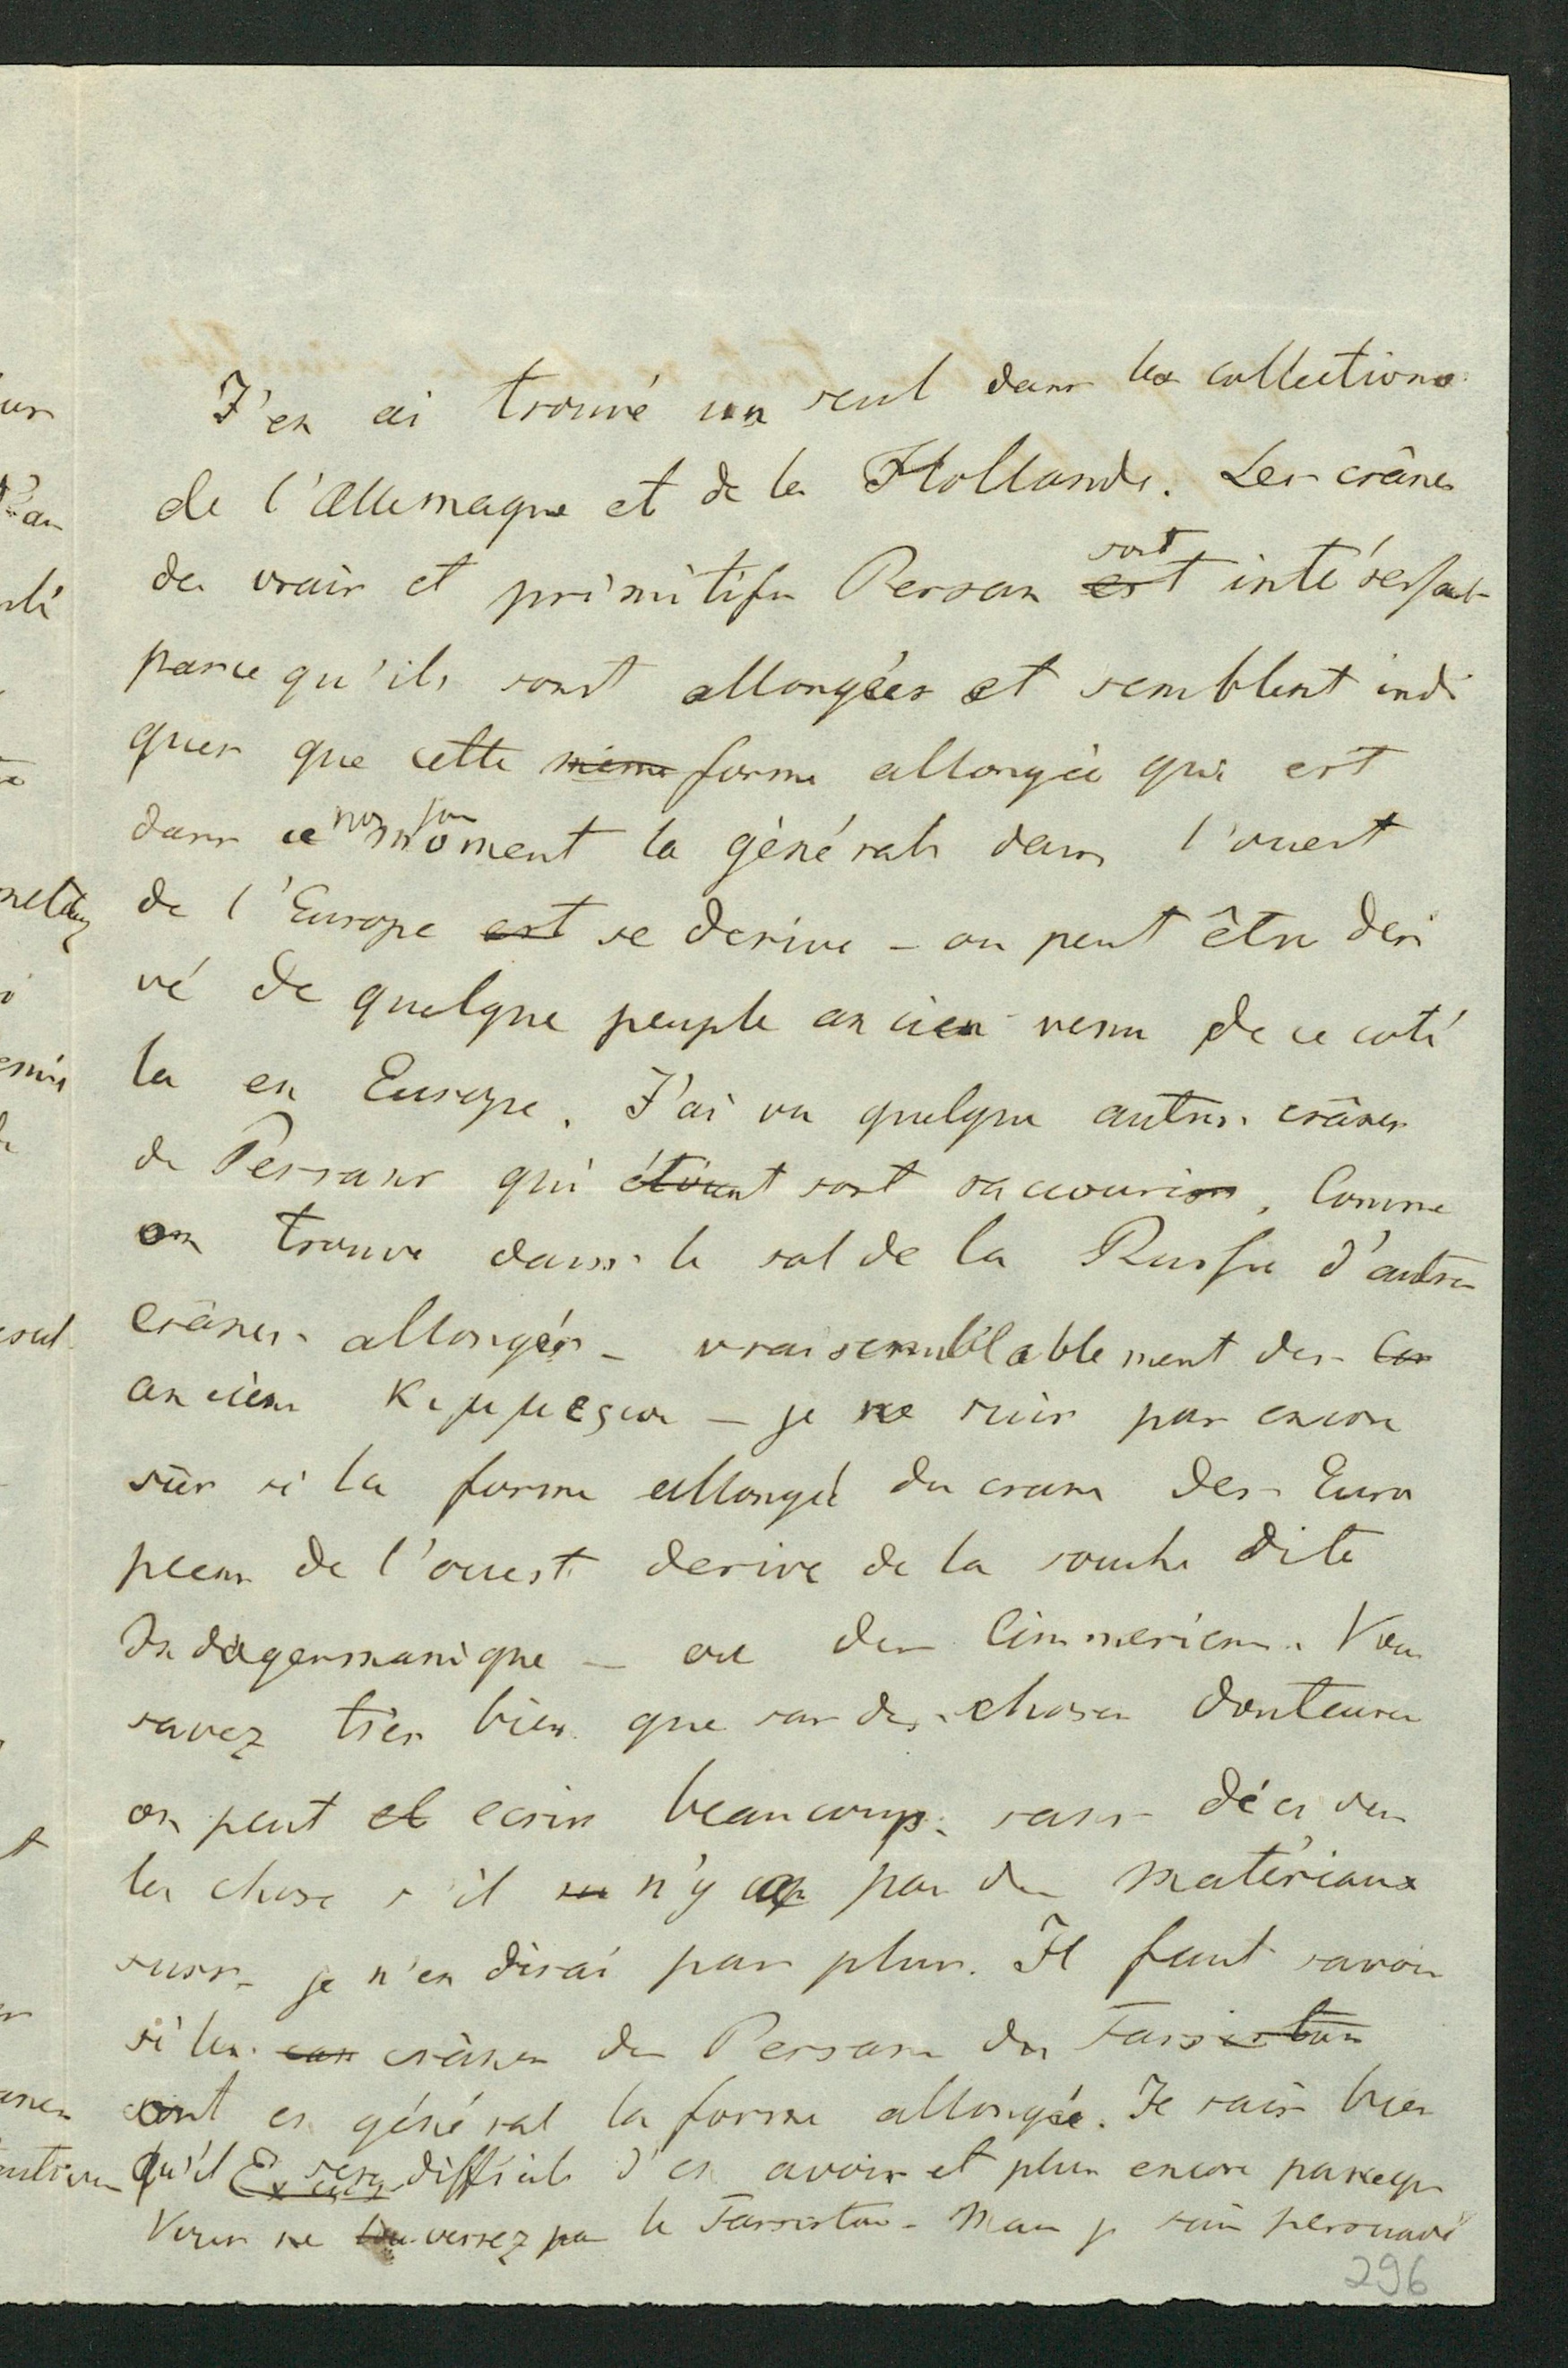 J'en ai trouvé un seul dans les collections
de l'Allemagne et de la Hollande. Les crânes
des vrais et primitifs Persan est sont intéressant
parce qu'ils sont allongées et semblent indi
quer que cette même forme allongée qui est
dans ce moment nos jours la générale dans l'ouest
de l'Europe est se derive – ou peut être deri
vé de quelque peuple ancien venu de ce coté
la en Europe. J'ai vu quelque autres crânes
de Persans qui étoient sont raccourcis. Comme
on trouve dans le sol de la Russie d'autres
crânes allongés – vraisemblablement des
anciens – je ne suis pas encore
sûr si la forme allongée du crane des Euro
peens de l'ouest derive de la souche dite
Indogermanique – ou des Cimmeriens. Vous
savez très bien que sur des choses douteuses
on peut ecrire beaucoup sans décider
la chose s'il n'y a pas des matériaux
surs – je n'en dirai pas plus. Il faut savoir
si les crânes des Persans du Farsistan
ont en général la forme allongée. Je sais bien
Qu'il sera difficile d'en avoir et plus encore parceque
Vous ne verrez pas le Farsistan – Mais je suis persuadé
296